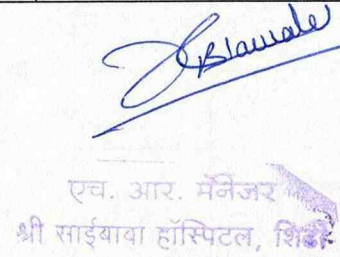 एच. आर. मॅनेजर
श्री साईबाबा हॉस्पिटल, शिर्डी